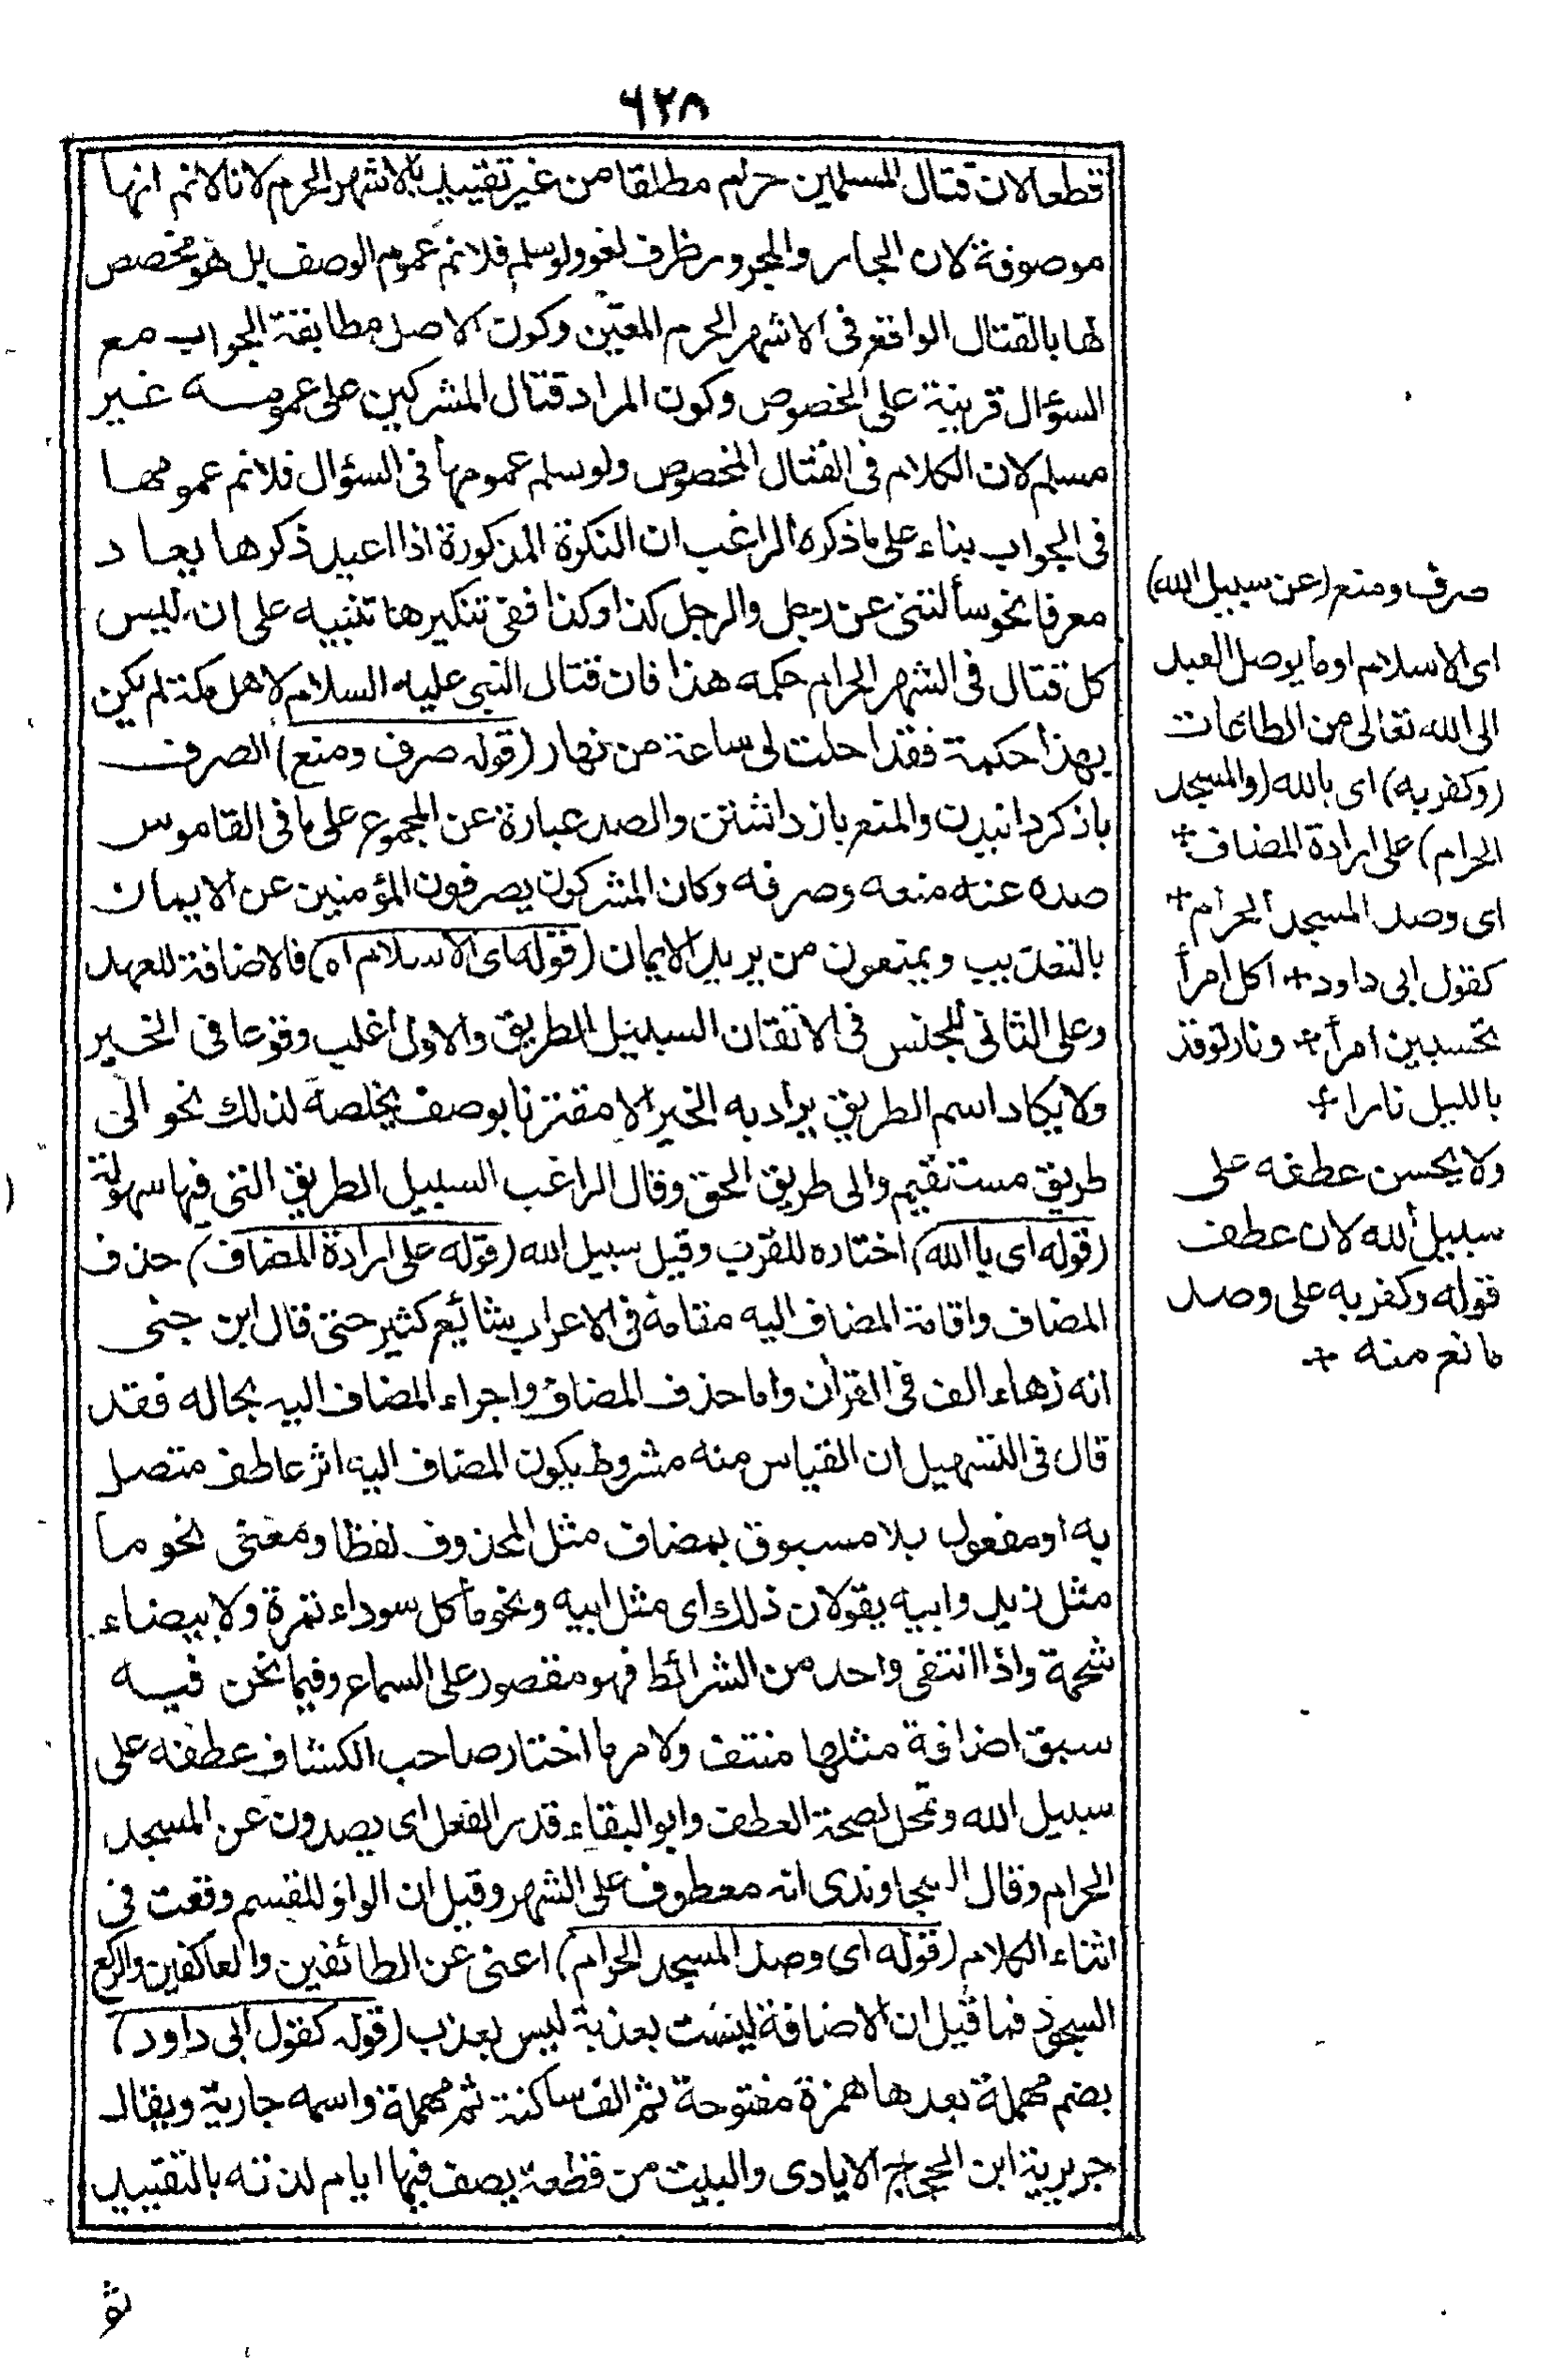 ٦٢٨
قطعا لان قتال المسلمين حرام مطلقا من غير تقييد بالاشهر الحرم لانا لانم انها
موصوفة لان الجار والمجرور ظرف لغو ولو سلم فلانم عموم الوصف بل هو مخصص
لها بالقتال الواقع فى الاشهر الحرم المعين وكون الاصل مطابقة الجواب مع
السؤال قرينة على الخصوص وكون المراد قتال المشركين على عمومه غير
مسلم لان الكلام فى القتال المخصوص ولو سلم عمومها فى السؤال فلانم عمومها
فى الجواب بناء على ما ذكره الراغب ان النكرة المذكورة اذا اعيد ذكرها يعاد
معرفا نحو سألتنى عن رجل والرجل كذا وكذا ففى تنكيرها تنبيه على ان ليس
كل قتال فى الشهر الحرام حكمه هذا فان قتال النبى عليه السلام لاهل مكة لم يكن
بهذا حكمة فقد احلت لى ساعة من نهار (قوله صرف ومنع) الصرف
باز كردانيدن والمنع باز داشتن والصد عبارة عن المجموع على ما فى القاموس
صده عنه منعه وصرفه وكان المشركون يصرفون المؤمنين عن الايمان
بالتعذيب ويمنعون من يريد الايمان (قوله اى الاسلام اه) فالاضافة للعهد
وعلى الثانى للجنس فى الاتقان السبيل الطريق والاول اغلب وقوعا فى الخير
ولا يكاد اسم الطريق يراد به الخير الا مقترنا بوصف يخلصه لذلك نحو الى
طريق مستقيم والى طريق الحق وقال الراغب السبيل الطريق التى فيها سهولة
(قوله اى بالله) اختاره للقرب وقيل سبيل الله (قوله على ارادة المضاف) حذف
المضاف واقامة المضاف اليه مقامه فى الاعراب شائع كثير حتى قال ابن جنى
انه زهاء الف فى القرآن واما حذف المضاف واجراء المضاف اليه بحاله فقد
قال فى التسهيل ان القياس منه مشروط بكون المضاف اليه اثر عاطف متصل
به او مفعول بلا مسبوق بمضاف مثل المحذوف لفظا ومعنى نحو ما
مثل زيد وابيه يقولان ذلك اى مثل ابيه ونحو ما كل سوداء تمرة ولا بيضاء
شحمة واذا انتفى واحد من الشرائط فهو مقصور على السماع وفيما نحن فيه
سبق اضافة مثلها منتف ولامر ما اختار صاحب الكشاف عطفه على
سبيل الله وتمحل لصحة العطف وابو البقاء قدر الفعل اى يصدون عن المسجد
الحرام وقال السجاوندى انه معطوف على الشهر وقيل ان الواو للقسم وقعت فى
اثناء الكلام (قوله اى وصد المسجد الحرام) اعنى عن الطائفين والعاكفين والركع
السجود فما قيل ان الاضافة ليست بعذبة ليس بعذب (قوله كقول ابى داود)
بضم مهملة بعدها همزة مفتوحة ثم الف ساكنة ثم مهملة واسمه جارية ويقال
جريرية ابن الحجاج الايادى والبيت من قطعة يصف فيها ايام لذته بالتقييد
صرف ومنع (عن سبيل الله)
اى الاسلام او ما يوصل العبد
الى الله تعالى من الطاعات
(وكفر به) اى بالله (والمسجد
الحرام) على ارادة المضاف +
اى وصد المسجد الحرام +
كقول ابى داود + اكل امرأ
تحسبين امرأ + ونار توقد
بالليل نارا +
ولا يحسن عطفه على
سبيل الله لان عطف
قوله وكفر به على وصد
مانع منه +